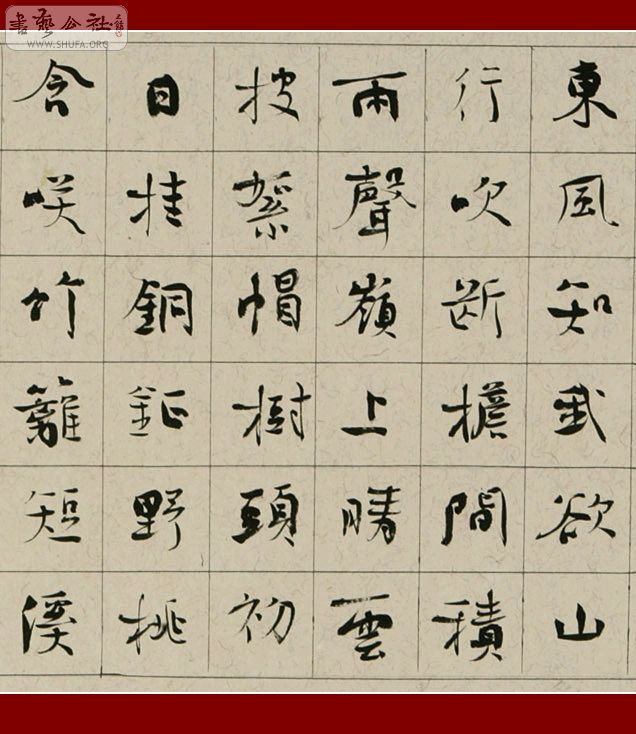 書藝公社
WWW.SHUFA.ORG
東風知我欲山
行吹斷檐間積
雨聲嶺上晴雲
披絮帽樹頭初
日挂銅鉦野桃
含咲竹籬短溪